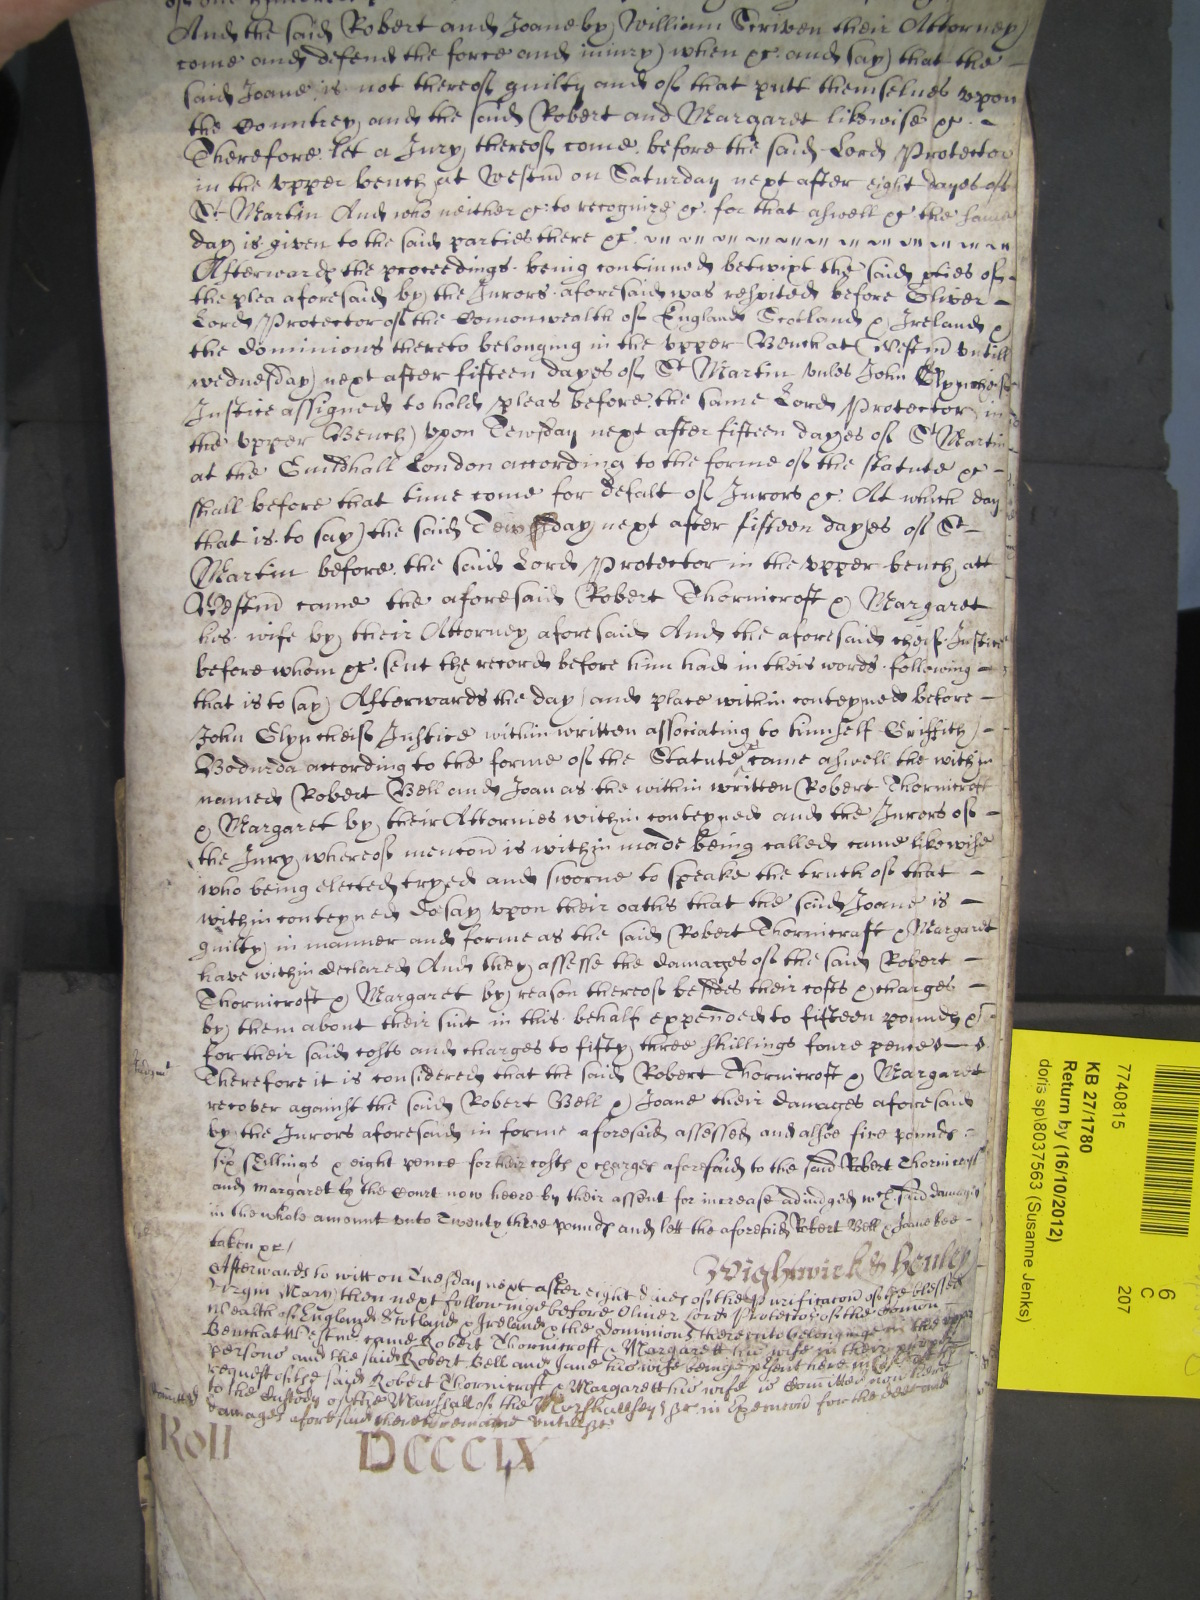 And the said Robert and Joane by William Scriven their Attorney
come and defend the force and iniury when &c. and say that the
said Joane is not thereof guilty and of that putt themselues vpon
the Countrey and the said Robert and Margaret likewise &c. -
Therefore let a Jury thereof come before the said Lord Protector
in the vpper bench at Westm on Saturday next after eight dayes of
St. Martin And who neither &c. to recognize &c. for that aswell &c. the same
day is given to the said parties there &c.
Afterwards the proceedings being continued betwixt the said pties of -
the plea aforesaid by the Jurors aforesaid was respited before Oliver -
Lord Protector of the Comonwealth of England Scotland & Ireland &
the dominions thereto belonging in the vpper Bench at Westm vntill
wednesday next after fifteen dayes of St Martin vnles John Glynn cheife
Justice assigned to hold pleas before the same Lord Protector in
the vpper Bench vpon Tewsday next after fifteen dayes of St Martin
at the Guildhall London according to the forme of the statute &c -
shall before that time come for defalt of Jurors &c. At which day
that is to say the said Tewsday next after fifteen dayes of St -
Martin before the said Lord Protector in the vpper bench att
Westm came the aforesaid Robert Thornicroft & Margaret
his wife by their Attorney aforesaid And the aforesaid cheif Justice
before whom &c. sent the record before him had in theis words following -
that is to say Afterwards the day and place within conteyned before -
John Glyn cheif Justice within written associating to himself Griffith -
Bodurda according to the forme of the Statute &c came aswell the within
named Robert Bell and Joan as the within written Robert Thornicroft
& Margaret by their Attornies within conteyned and the Jurors of -
the Jury whereof mencon is within made being called came likewise
who being elected tryed and sworne to speake the truth of that -
within conteyned do say vpon their oaths that the said Joane is -
guilty in manner and forme as the said Robert Thornicraft & Margaret
have within declared And they assesse the damages of the said Robert -
Thornicroft & Margaret by reason thereof besides their costs & charges -
by them about their suit in this behalf expended to fifteen pounds &
for their said costs and charges to fifty three shillings foure pence
Therefore it is considered that the said Robert Thornicroft & Margaret
recover against the said Robert Bell & Joane their damages aforesaid
by the Jurors aforesaid in forme aforesaid assessed and alsoe five pounds -
six shillings & eight pence for their costs & charges aforesaid to the said Robert Thornicroft
and Margaret by the Court now heere by their assent for increase adiudged wch said damages
in the whole amount vnto Twenty three pounds and lett the aforesaid Robert Bell & Joane bee -
taken &c/
Wightwick & Henley
Afterwards to witt on Tuesday next after eight dayes of the Purificacon of the blessed
Virgin Mary then next followinge before Oliver Lord Protector of the Comon
wealth of England Scotland & Ireland & the dominions thereunto belonginge in the vpper
Bench at Westmr came Robert Thornicroft & Margarett his wife in their proper
persons and the said Robert Bell and Jane his wife beinge psent here in Court att the
request of the said Robert Thornicroft & Margarett his wife is Comitted
to the Custody of the Marshall of the Marshallsey &c. in Execucon for the debt and
damages aforesaid there to remaine vntill &c.
Roll DCCCCLX
7740815
KB 27/1780
Return by (16/10/2012)
doris sp\8037563 (Susanne Jenks)
6
C
207